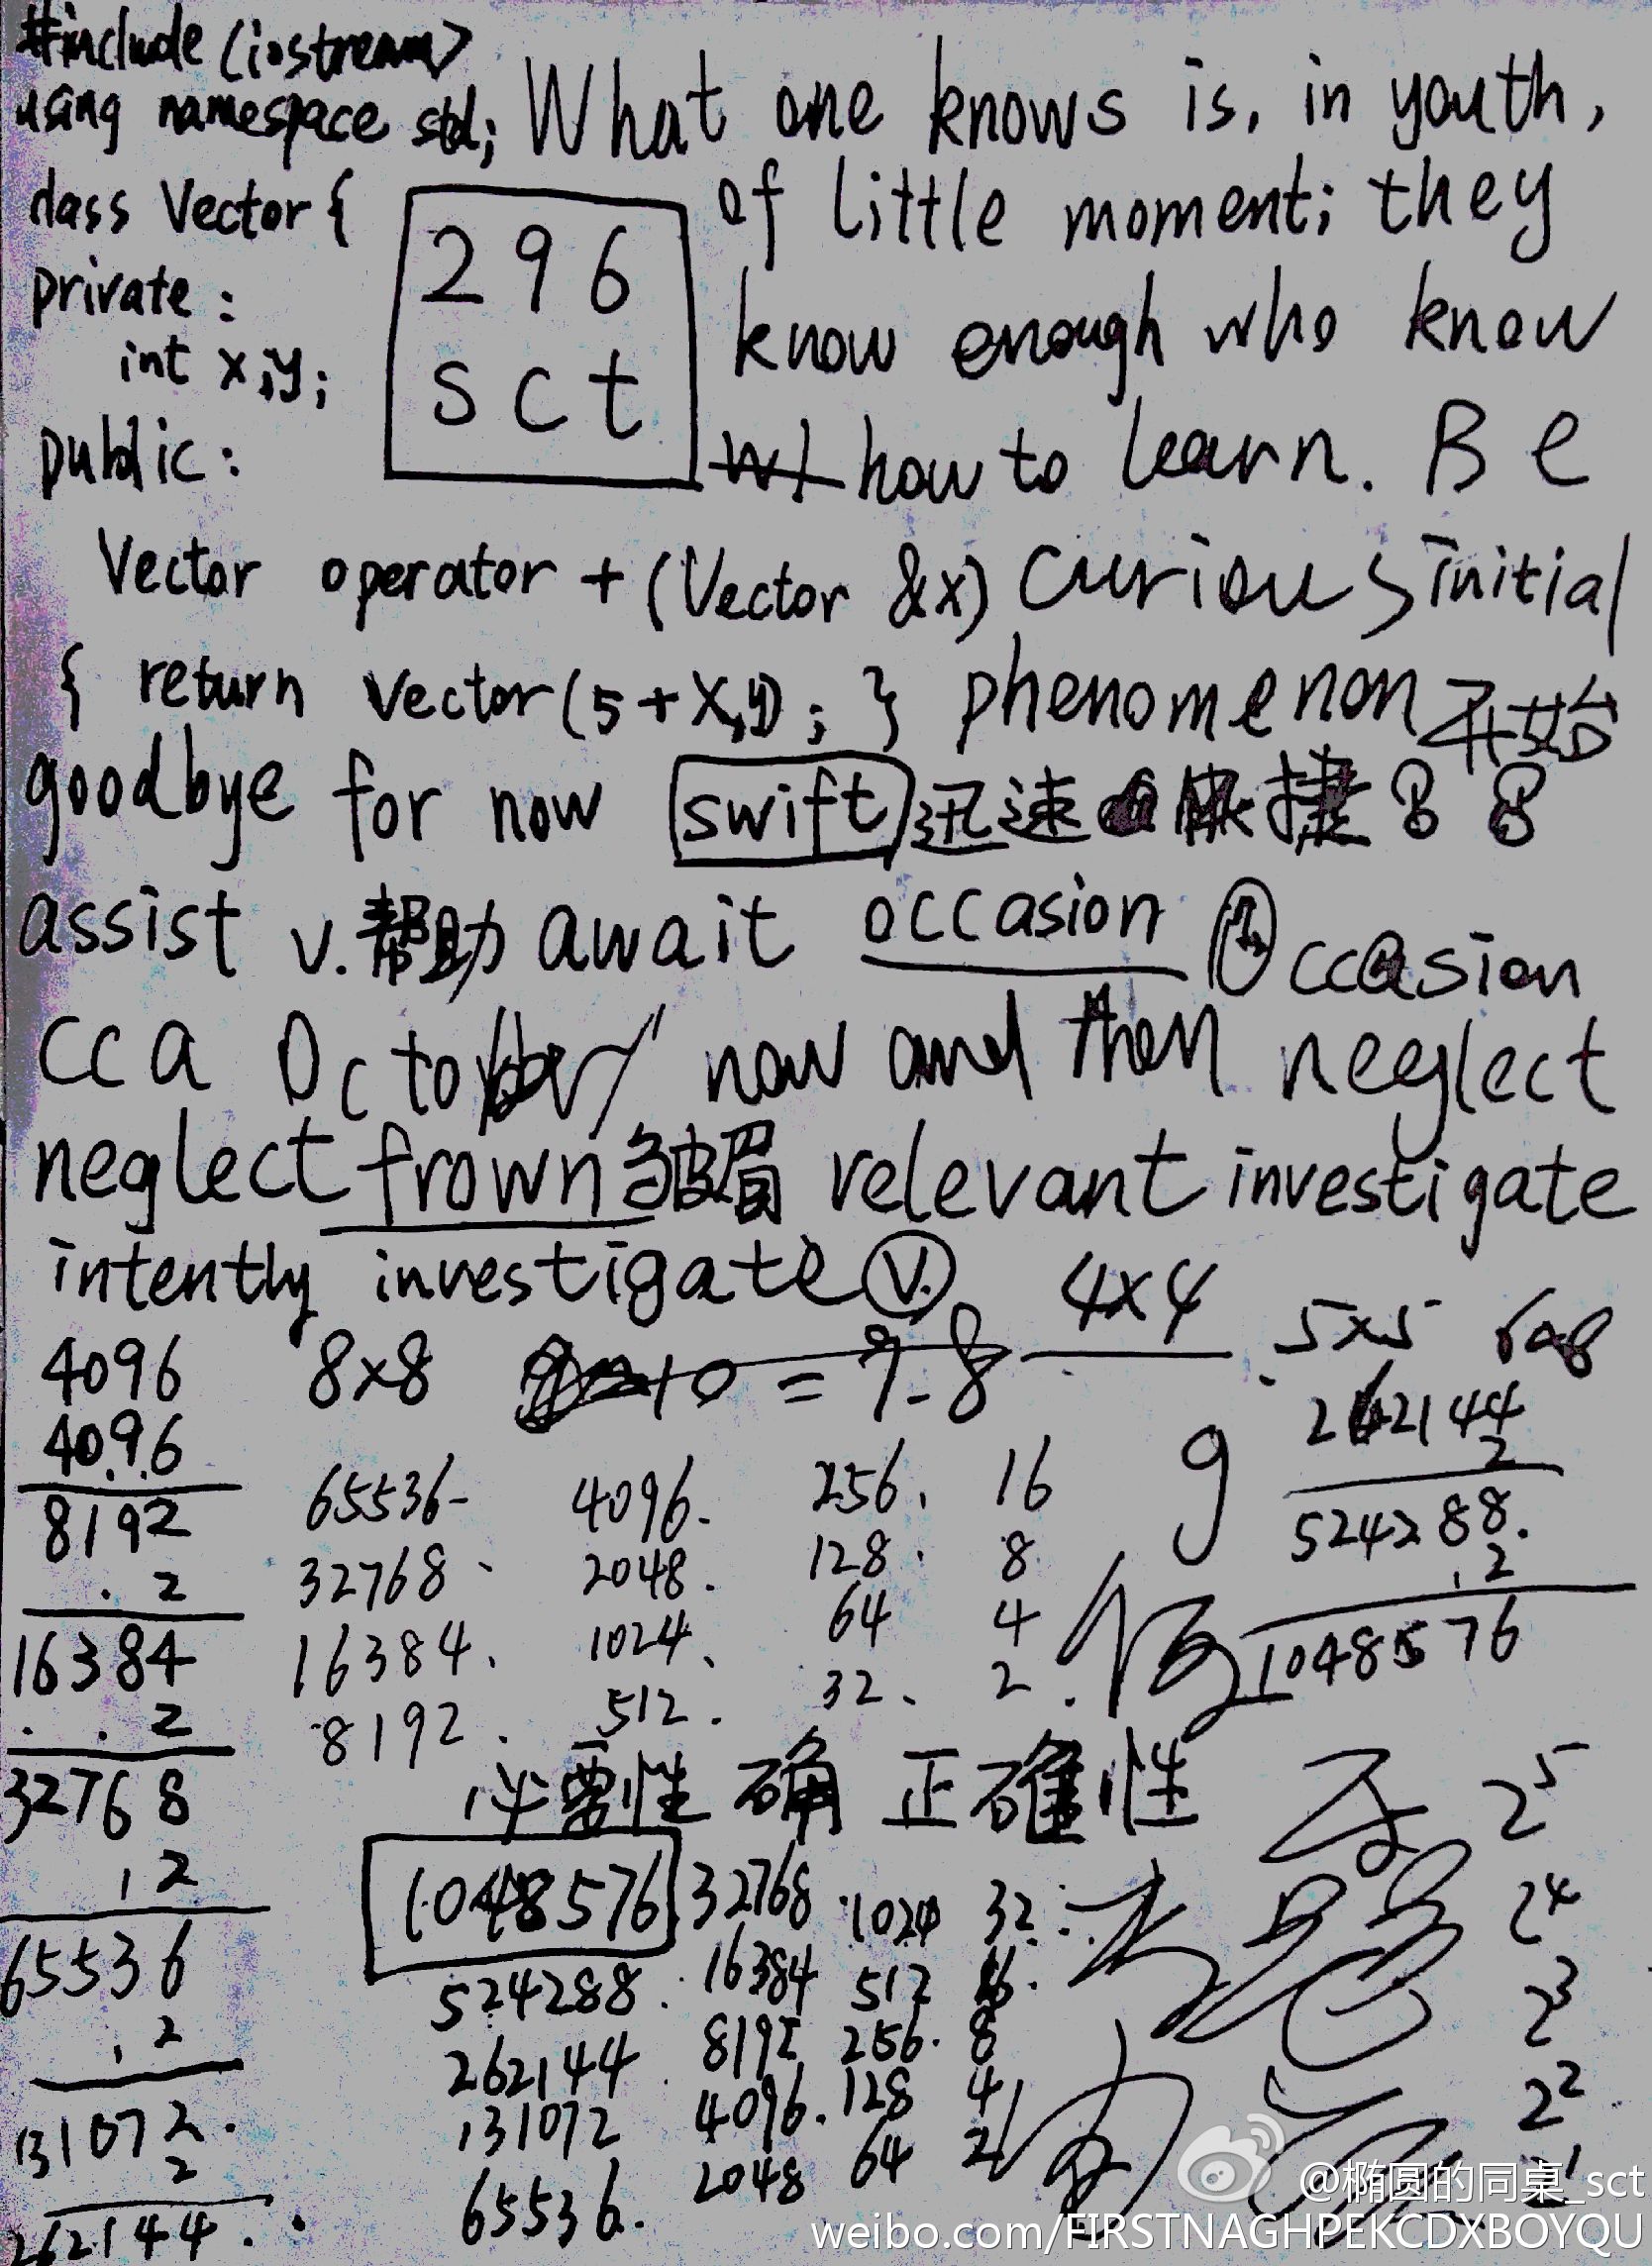 #include (iostream>
using namespace std;
What one knows is, in youth,
class Vector {
of little moment; they
296
sct
private :
know enough who know
int x,y;
how to learn. Be
public :
Vector operator + (Vector &x) curious initial
{ return Vector(5+x,y); } phenomenon 开始
goodbye for now swift 迅速 快捷 8 8
assist v. 帮助 await occasion occasion
cca October now and then neglect
neglect frown 皱眉 relevant investigate
intently investigate v.
4×4
5×5
4096 8×8 = 9.8
4096
8192
. 2
16384
. . 2
32768
, 2
65536
, 2
131072.
2
262144.
65536- 4096. 256. 16
32768. 2048. 128. 8
16384. 1024. 64 4
8192. 512. 32. 2.
g
262144
2
524288.
, 2
1048576
必要性 确 正确性
1048576 32768. 1024 32
524288. 16384 512 16.
262144. 8192 256. 8
131072 4096. 128 4
65536. 2048 64 2
2⁵
2⁴
2³
2²
2¹
@椭圆的同桌_sct
weibo.com/FIRSTNAGHPEKCDXBOYQU